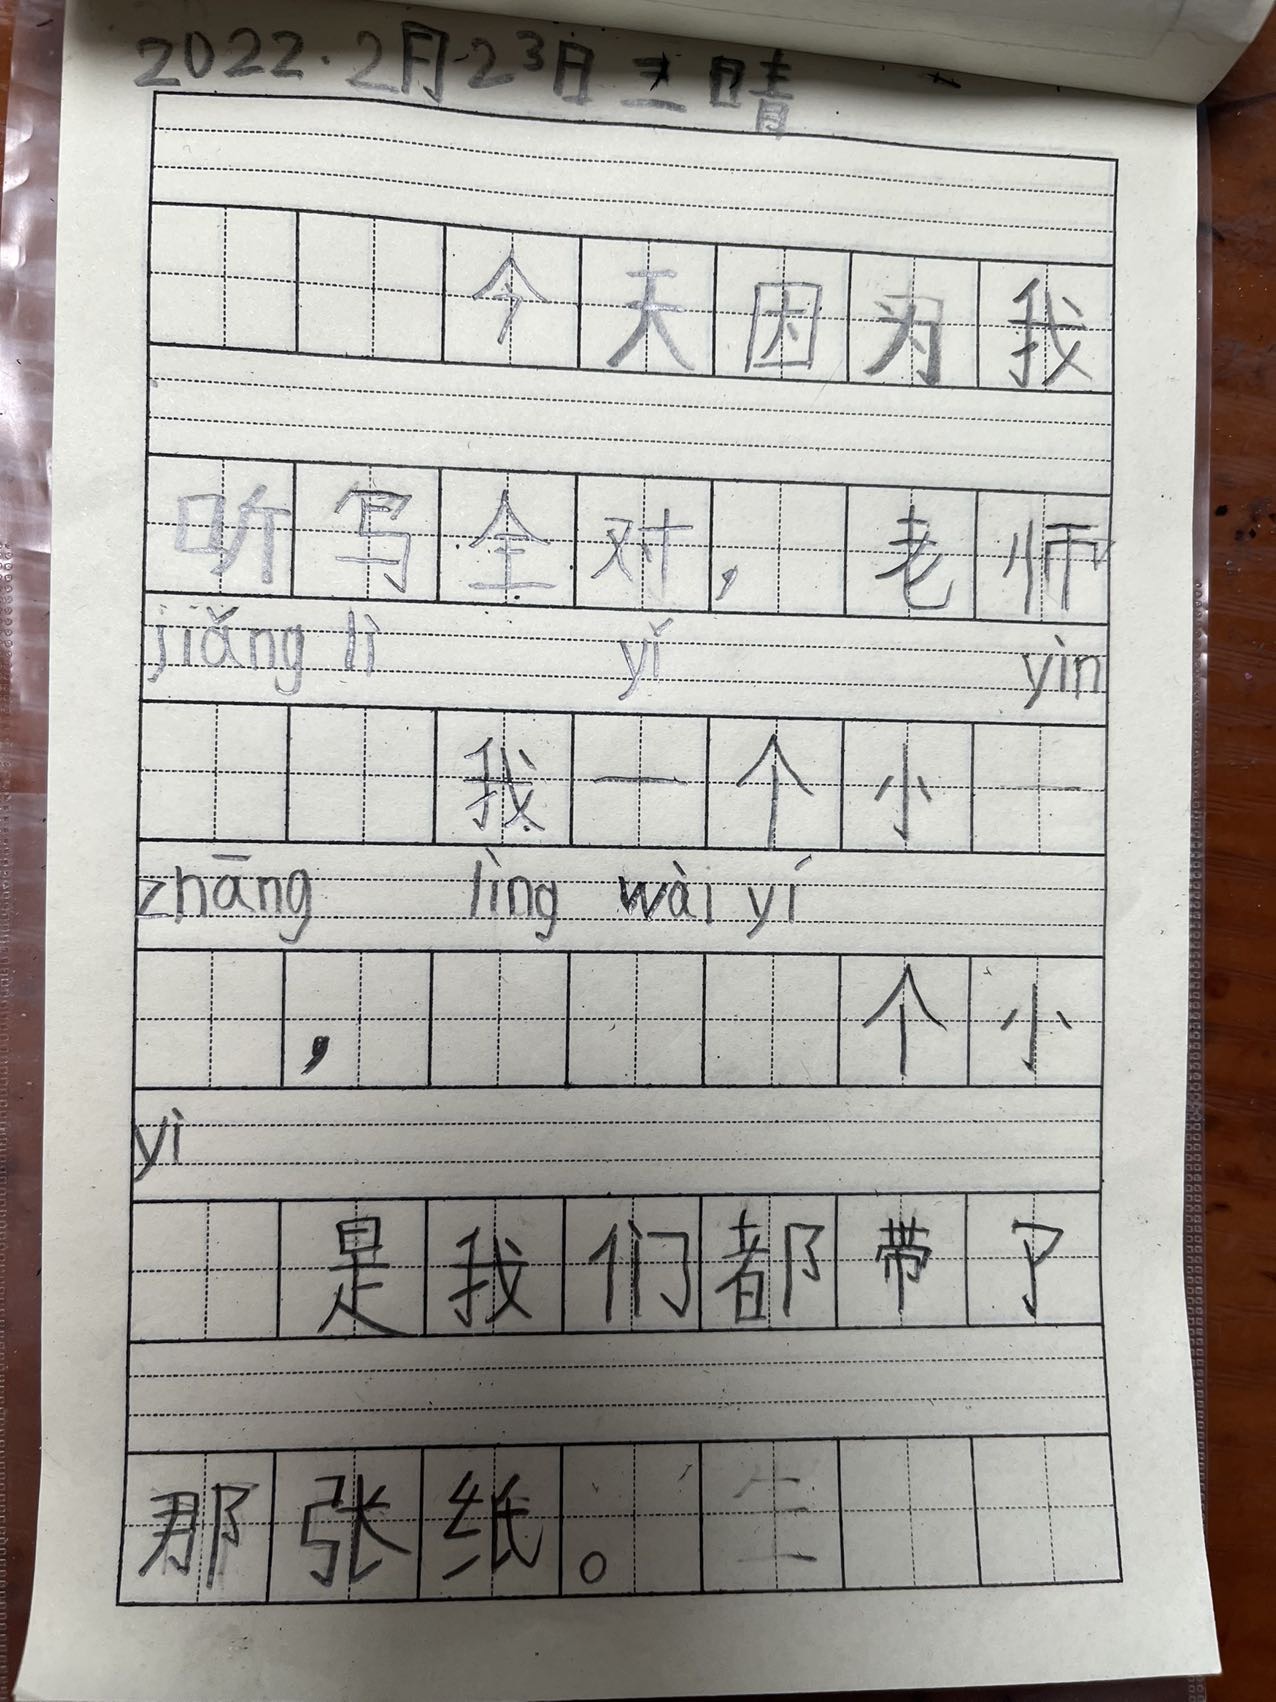 2022.2月23日 三 晴
今天因为我
听写全对，老师
jiǎng lì yǐ yìn
我一个小一
zhāng lìng wài yí
，个小
yì
是我们都带了
那张纸。